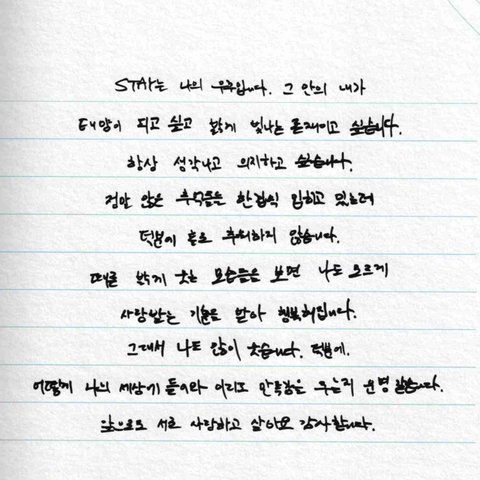 STAY는 나의 우주입니다. 그 안의 내가
태양이 되고 싶고 밝게 빛나는 존재이고 싶습니다.
항상 생각나고 의지하고 싶습니다.
정말 많은 추억들을 한겹씩 입히고 있는터
덕분에 홀로 추워하지 않습니다.
때론 밝게 웃는 모습들을 보면 나도 모르게
사랑받는 기분을 받아 행복해집니다.
그래서 나도 많이 웃습니다. 덕분에.
어떻게 나의 세상에 들어와 이리도 만족감을 주는지 운명 같습니다.
앞으로도 서로 사랑하고 살아요 감사합니다.